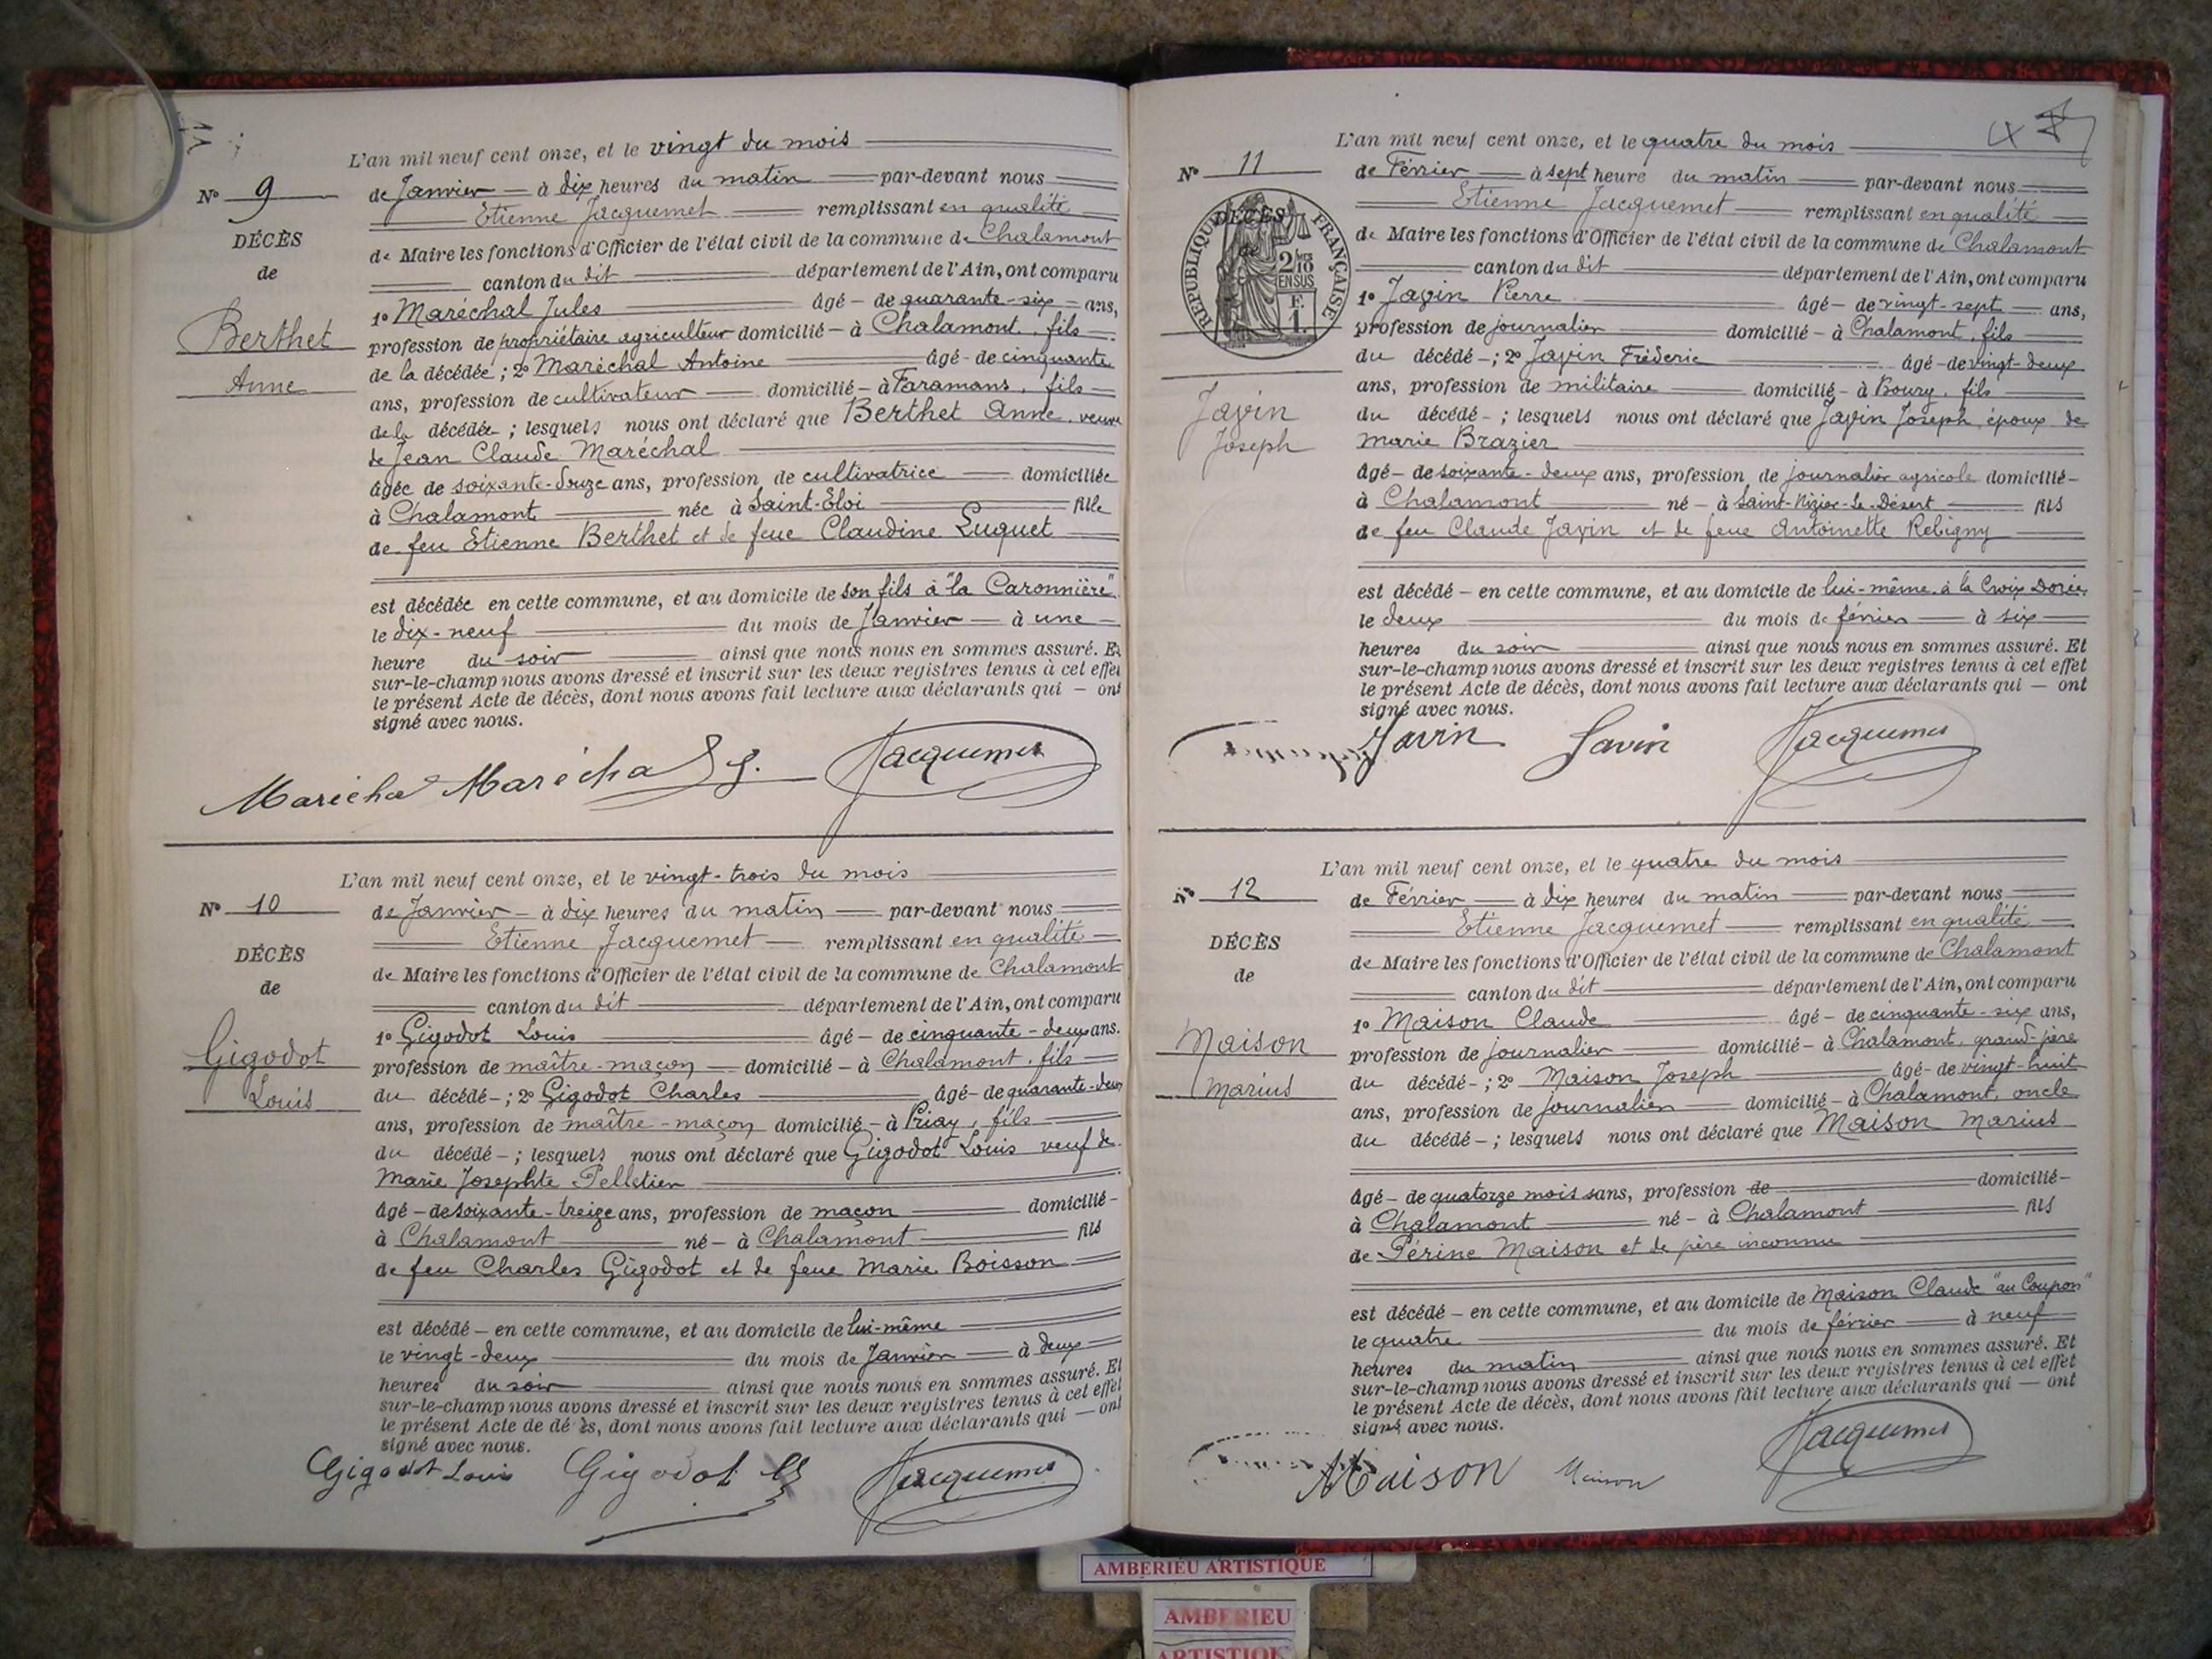 L'an mil neuf cent onze, et le vingt du mois
N° 9
de Janvier à dix heures du matin par-devant nous
Etienne Jacquemet remplissant en qualité
DÉCÈS
de Maire les fonctions d'Officier de l'état civil de la commune de Chalamont
de
canton du dit département de l'Ain, ont comparu
1° Maréchal Jules âgé - de quarante-six - ans,
Berthet
profession de propriétaire agriculteur domicilié - à Chalamont, fils
de la décédée ; 2° Maréchal Antoine âgé - de cinquante
Anne
ans, profession de cultivateur domicilié - à Faramans, fils
de la décédée - ; lesquels nous ont déclaré que Berthet Anne, veuve
de Jean Claude Maréchal
âgée de soixante-douze ans, profession de cultivatrice domiciliée
à Chalamont née à Saint-Eloi fille
de feu Etienne Berthet et de feue Claudine Luquet
est décédée en cette commune, et au domicile de son fils à "la Caronnière"
le dix-neuf du mois de Janvier à une
heure du soir ainsi que nous nous en sommes assuré. Et
sur-le-champ nous avons dressé et inscrit sur les deux registres tenus à cet effet
le présent Acte de décès, dont nous avons fait lecture aux déclarants qui — ont
signé avec nous.
Maréchal Maréchal J. Jacquemet
L'an mil neuf cent onze, et le vingt-trois du mois
N° 10
de Janvier - à dix heures du matin par-devant nous
Etienne Jacquemet remplissant en qualité
DÉCÈS
de Maire les fonctions d'Officier de l'état civil de la commune de Chalamont
de
canton du dit département de l'Ain, ont comparu
1° Gigodot Louis âgé - de cinquante-deux ans.
Gigodot
profession de maître-maçon domicilié - à Chalamont, fils
Louis
du décédé - ; 2° Gigodot Charles âgé - de quarante-deux
ans, profession de maître-maçon domicilié - à Priay, fils
du décédé - ; lesquels nous ont déclaré que Gigodot Louis veuf de
Marie Josephte Pelletier
âgé - de soixante-treize ans, profession de maçon domicilié -
à Chalamont né - à Chalamont fils
de feu Charles Gigodot et de feue Marie Boisson
est décédé - en cette commune, et au domicile de lui-même
le vingt-deux du mois de Janvier à deux
heures du soir ainsi que nous nous en sommes assuré. Et
sur-le-champ nous avons dressé et inscrit sur les deux registres tenus à cet effet
le présent Acte de décès, dont nous avons fait lecture aux déclarants qui — ont
signé avec nous.
Gigodot Louis Gigodot Ch Jacquemet
L'an mil neuf cent onze, et le quatre du mois
N° 11
de Février à sept heure du matin par-devant nous
Etienne Jacquemet remplissant en qualité
DÉCÈS
de
RÉPUBLIQUE FRANÇAISE
2/10 EN SUS
F. 1.
de Maire les fonctions d'Officier de l'état civil de la commune de Chalamont
canton du dit département de l'Ain, ont comparu
1° Javin Pierre âgé - de vingt-sept ans,
profession de journalier domicilié - à Chalamont, fils
du décédé - ; 2° Javin Fréderic âgé - de vingt-deux
ans, profession de militaire domicilié - à Bourg, fils
Javin
Joseph
du décédé - ; lesquels nous ont déclaré que Javin Joseph, époux de
Marie Brazier
âgé - de soixante-deux ans, profession de journalier agricole domicilié -
à Chalamont né - à Saint-Nizier-le-Désert fils
de feu Claude Javin et de feue Antoinette Rebigny
est décédé - en cette commune, et au domicile de lui-même à la Croix Dorée
le deux du mois de février à six
heures du soir ainsi que nous nous en sommes assuré. Et
sur-le-champ nous avons dressé et inscrit sur les deux registres tenus à cet effet
le présent Acte de décès, dont nous avons fait lecture aux déclarants qui — ont
signé avec nous.
Javin Javin Jacquemet
L'an mil neuf cent onze, et le quatre du mois
N° 12
de Février à dix heures du matin par-devant nous
Etienne Jacquemet remplissant en qualité
DÉCÈS
de Maire les fonctions d'Officier de l'état civil de la commune de Chalamont
de
canton du dit département de l'Ain, ont comparu
1° Maison Claude âgé - de cinquante-six ans,
Maison
profession de journalier domicilié - à Chalamont, grand-père
du décédé - ; 2° Maison Joseph âgé - de vingt-huit
Marius
ans, profession de journalier domicilié - à Chalamont, oncle
du décédé - ; lesquels nous ont déclaré que Maison Marius
âgé - de quatorze mois ans, profession de domicilié -
à Chalamont né - à Chalamont fils
de Périne Maison et de père inconnu
est décédé - en cette commune, et au domicile de Maison Claude "au Coupon"
le quatre du mois de février à neuf
heures du matin ainsi que nous nous en sommes assuré. Et
sur-le-champ nous avons dressé et inscrit sur les deux registres tenus à cet effet
le présent Acte de décès, dont nous avons fait lecture aux déclarants qui — ont
signé avec nous.
Maison Maison Jacquemet
AMBERIEU ARTISTIQUE
AMBERIEU
ARTISTIQUE